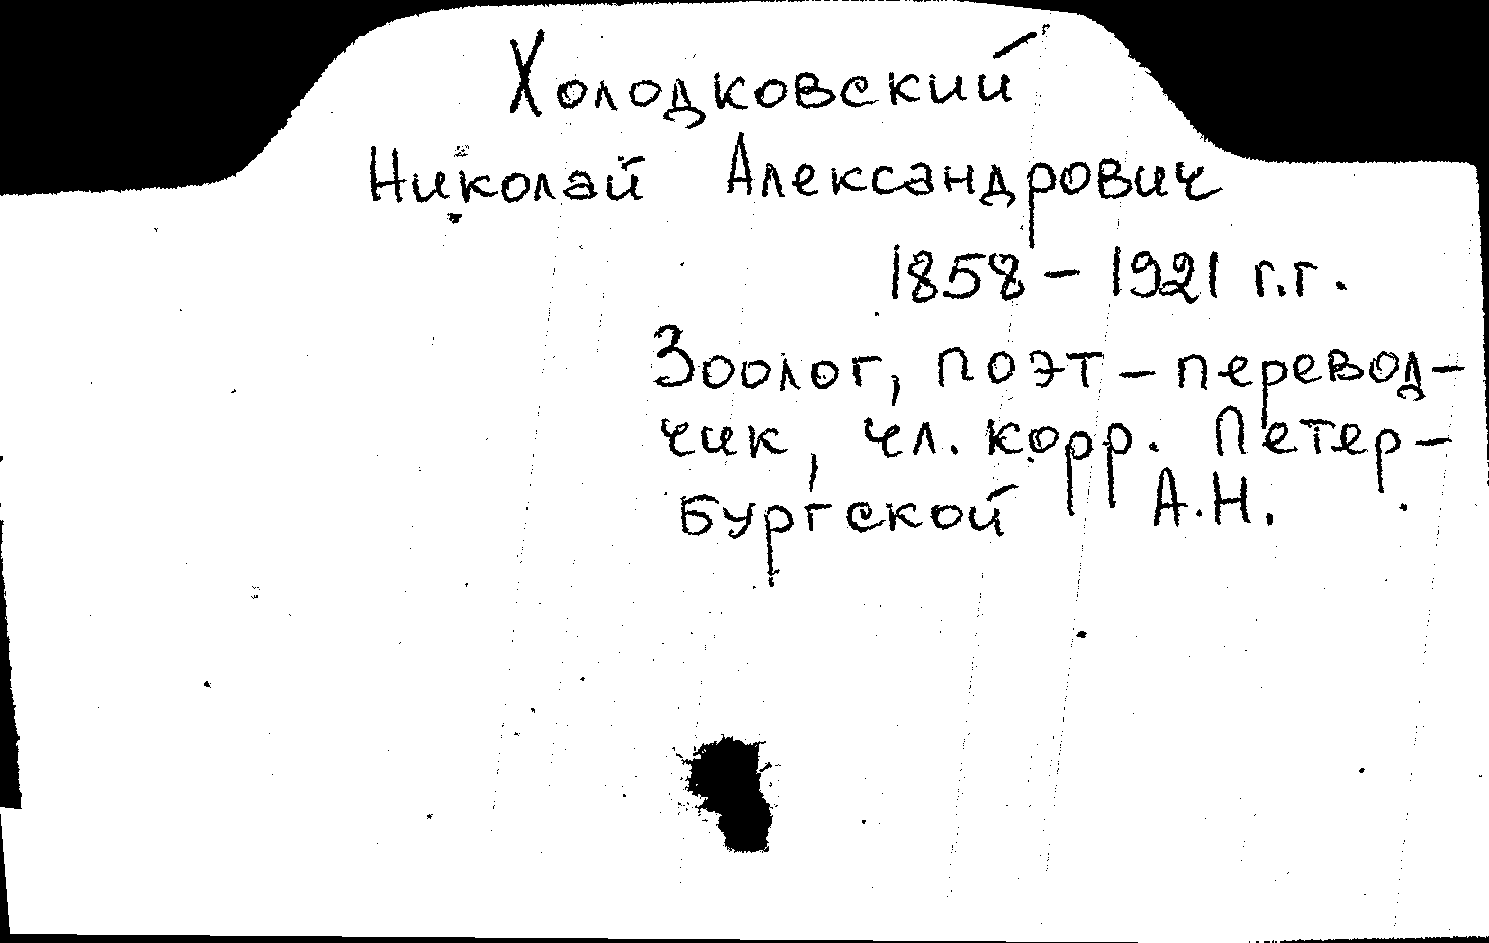 Холодковский
Николай Александрович
1858 – 1921 г.г.
Зоолог, поэт – перевод-
чик, чл. корр. Петер-
бургской А.Н.